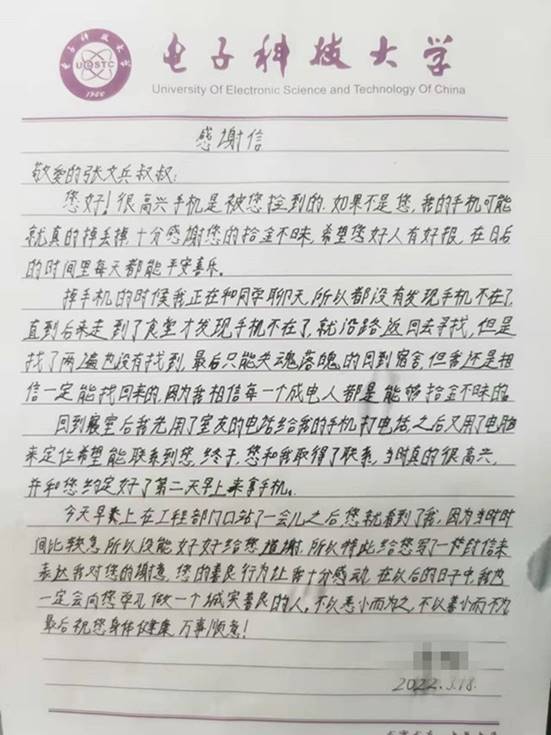 电子科技大学
UESTC
1956
University Of Electronic Science and Technology Of China
感谢信
敬爱的张文兵叔叔:
您好!很高兴手机是被您捡到的.如果不是您,我的手机可能
就真的掉丢掉,十分感谢您的拾金不昧,希望您好人有好报,在日后
的时间里每天都能平安喜乐。
掉手机的时候我正在和同学聊天,所以都没有发现手机不在了,
直到后来走到了食堂才发现手机不在了,就沿路返回去寻找,但是
找了两遍也没有找到,最后只能失魂落魄的回到宿舍,但我还是相
信一定能找回来的,因为我相信每一个成电人都是能够拾金不昧的。
回到寝室后我先用了室友的电话给我的手机打电话,之后又用了电脑
来定位希望能联系到您,终于,您和我取得了联系,当时真的很高兴,
并和您约定好了第二天早上来拿手机。
今天早上在工程部门口站了一会儿之后您就看到了我,因为当时时
间比较急所以没能好好给您道谢,所以特此给您写了一封信来
表达我对您的谢意,您的善良行为让我十分感动,在以后的日子中,我也
一定会向您学习,做一个诚实善良的人,不以恶小而为之,不以善小而不为
最后祝您身体健康,万事顺意!
2022.3.18.